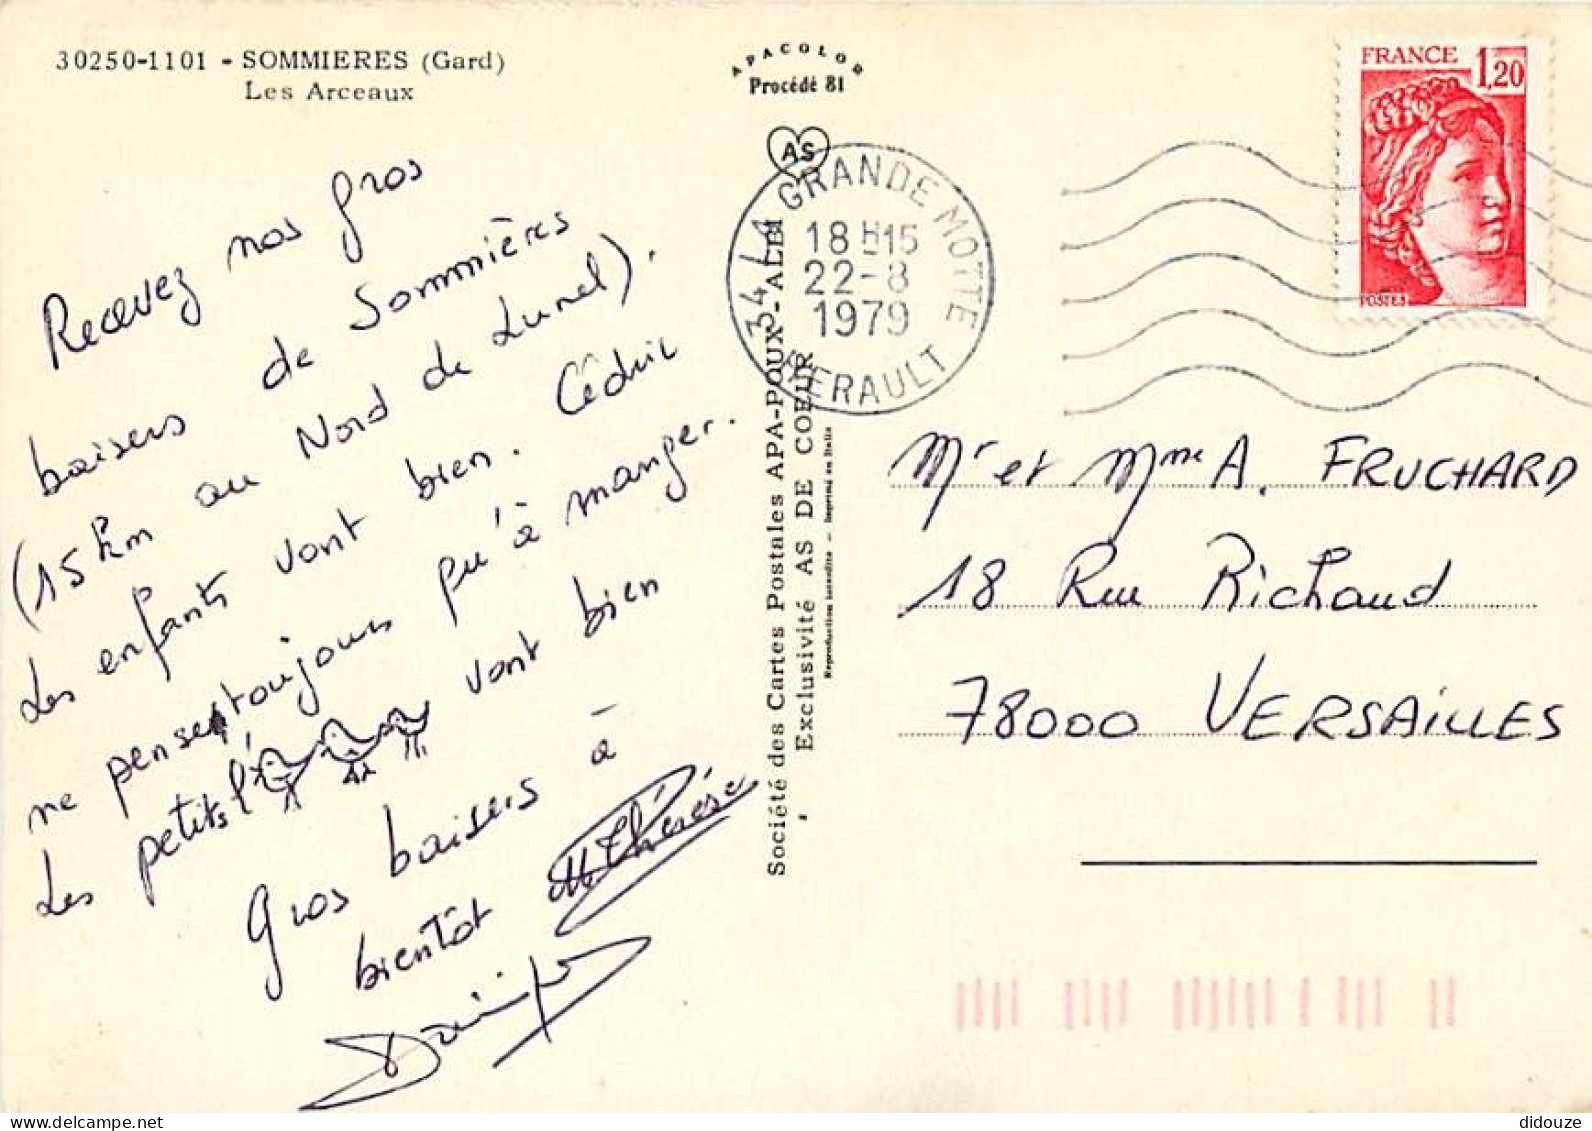 30250-1101 - SOMMIERES (Gard)
Les Arceaux
APACOLOR
Procédé 81
AS
FRANCE 1,20
POSTES
34 LA GRANDE MOTTE
18 H15
22-8
1979
HERAULT
Recevez nos gros
baisers de Sommières
(15 km au Nord de Lunel).
Les enfants vont bien. Cédric
ne pense toujours qu'à manger.
Les petits vont bien
Gros baisers à
bientôt M Thérèse
Société des Cartes Postales APA-POUX - ALBI
Exclusivité AS DE COEUR
Reproduction interdite - Imprimé en Italie
Mr et Mme A. FRUCHARD
18 Rue Richaud
78000 VERSAILLES
didouze